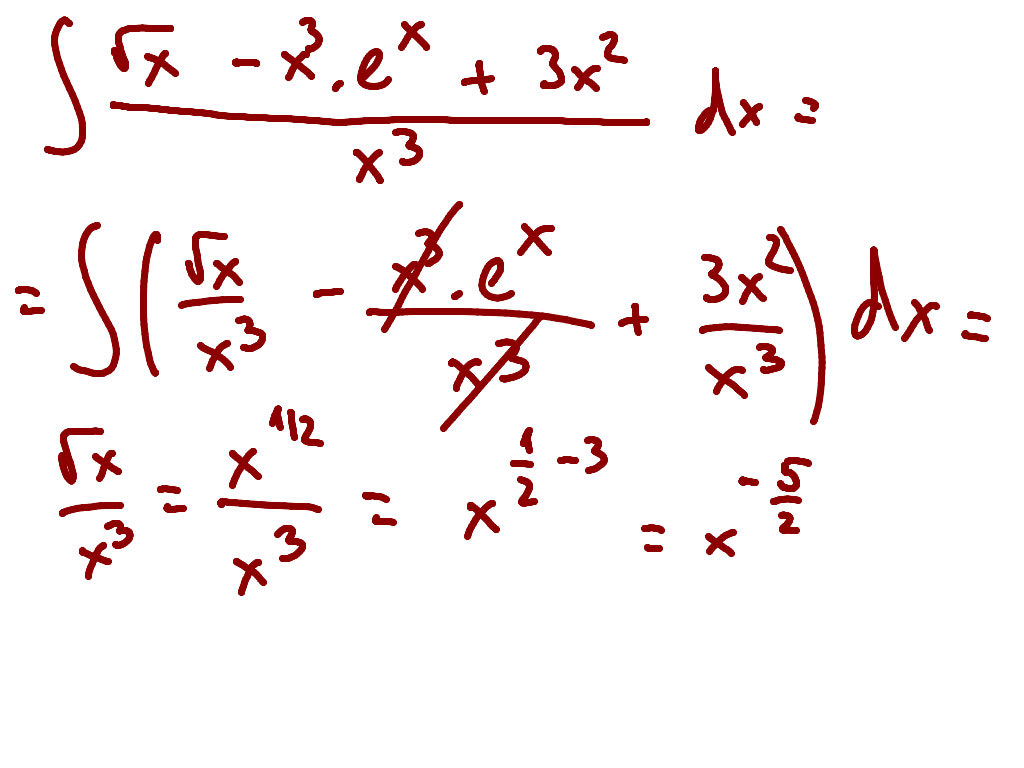 ∫ (√x - x³·eˣ + 3x²)/x³ dx =
= ∫ (√x/x³ - x³·eˣ/x³ + 3x²/x³) dx =
√x/x³ = x^(1/2)/x³ = x^(1/2 - 3) = x^(-5/2)